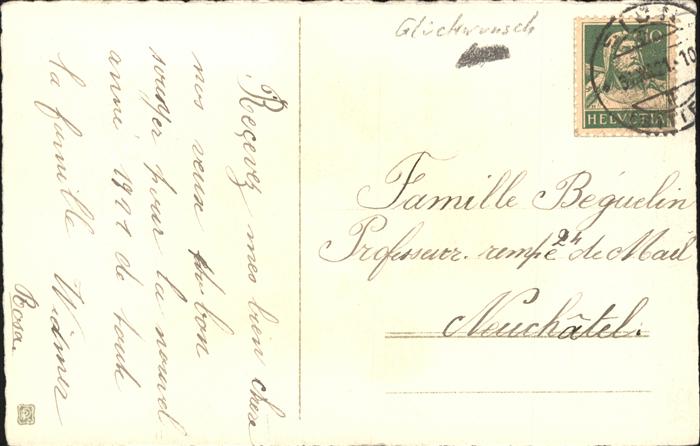 Glückwunsch
10
HELVETIA
Recevez mes bien chers
nos vœux du bon
souger pour la nouvel
anné 1921 de toute
la famille Widmer
Rosa.
Famille Béguelin
Professeur. rempe 24 de Mail
Neuchâtel.